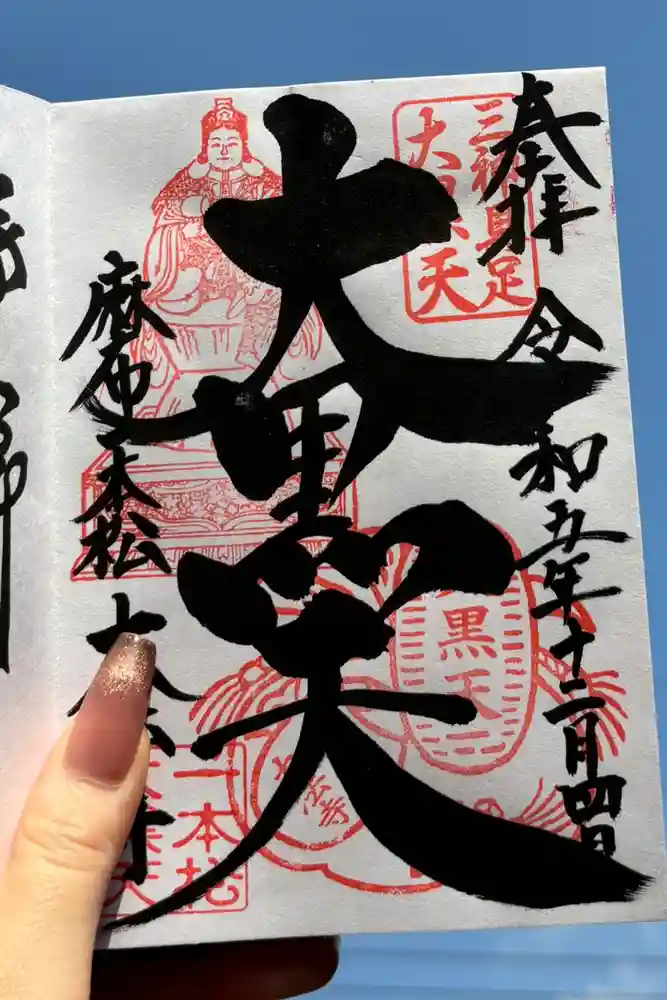 奉拝
令和五年十二月四日
三神具足
大黒天
大黒天
麻布一本松
大法寺
黒天
一本松